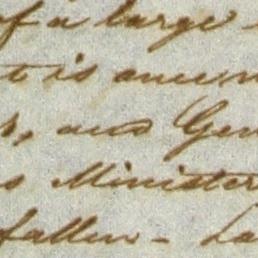 of a large
t is
, and Gen
s Minister
fallen - La